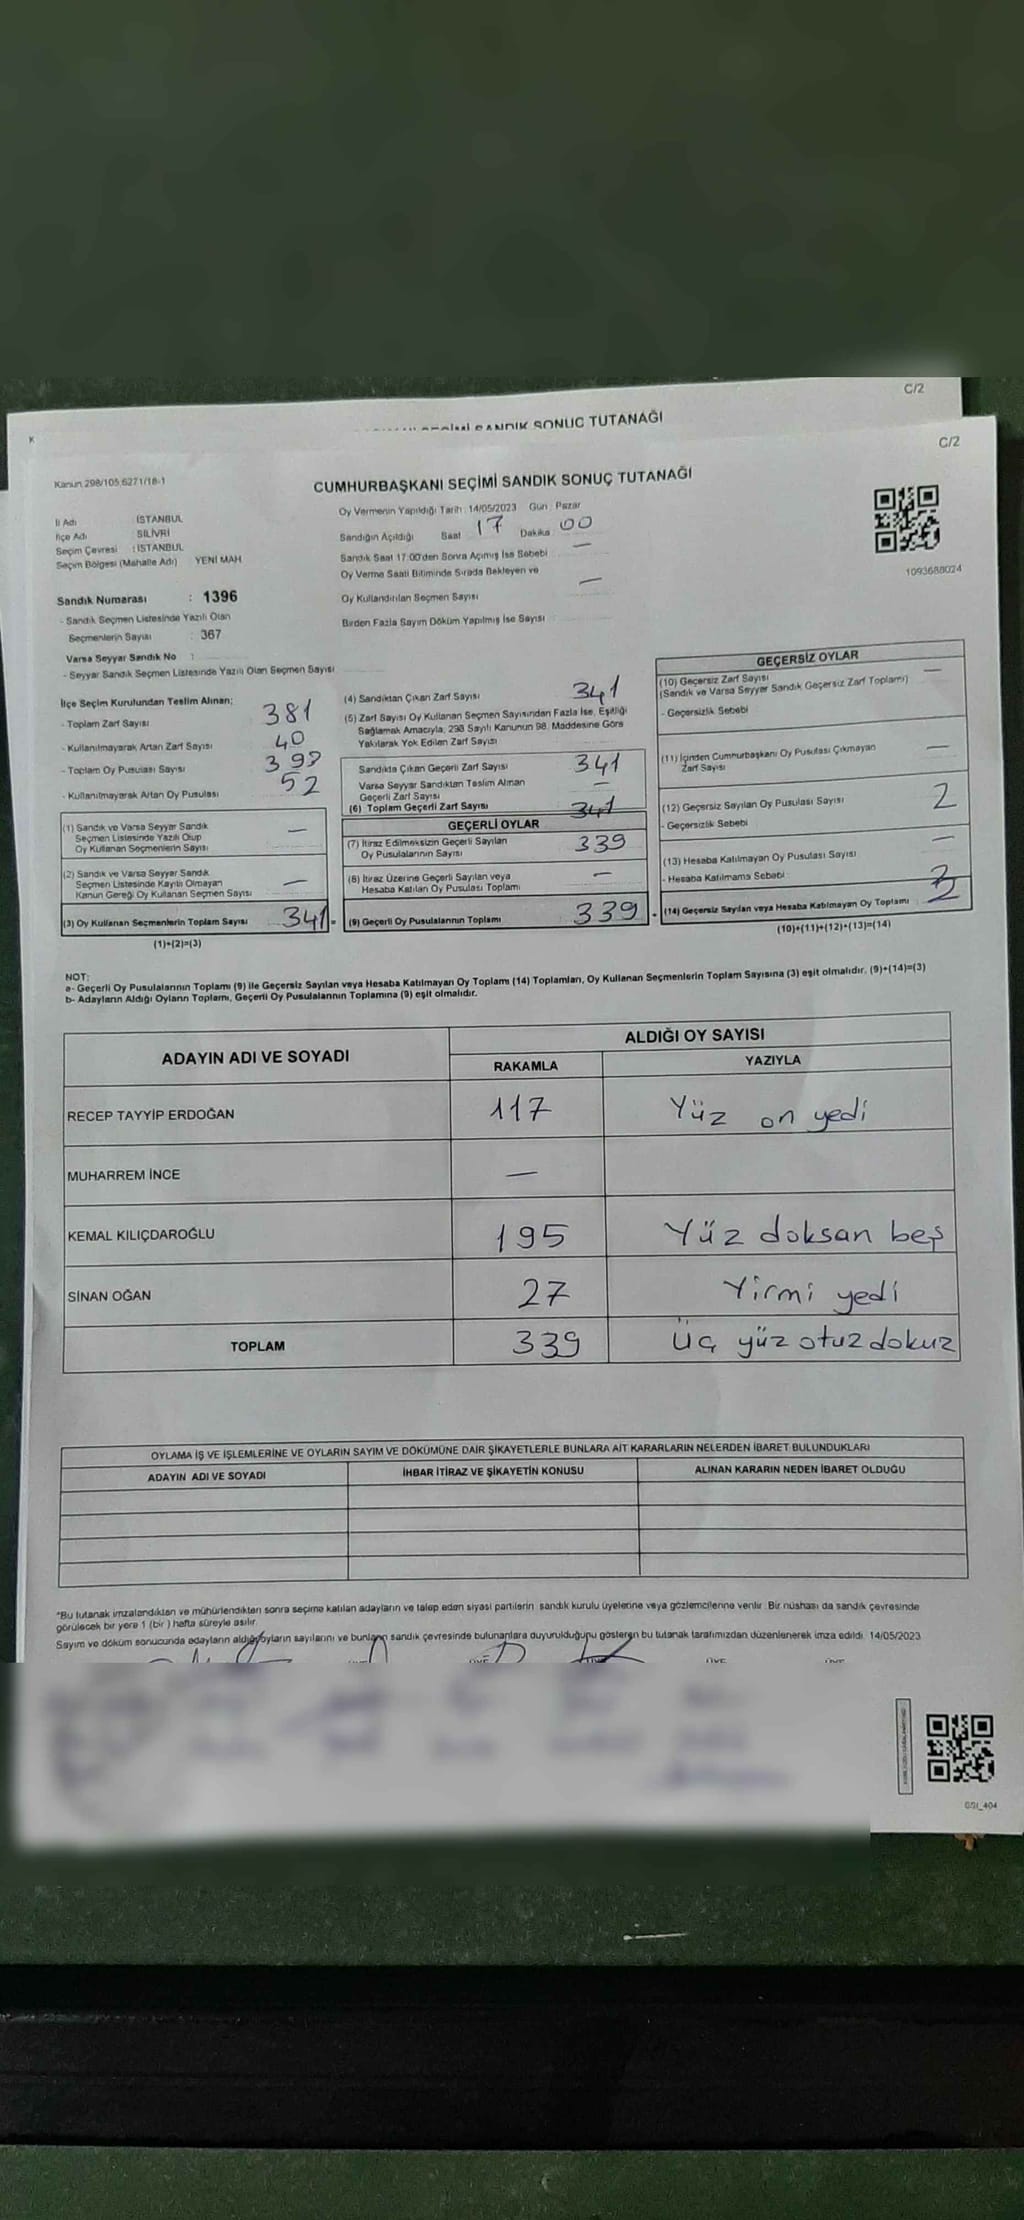 C/2
SANDIK SONUÇ TUTANAĞI
K
C/2
Kanun 298/105,6271/18-1
CUMHURBAŞKANI SEÇİMİ SANDIK SONUÇ TUTANAĞI
İl Adı İSTANBUL
İlçe Adı SİLİVRİ
Seçim Çevresi : İSTANBUL
Seçim Bölgesi (Mahalle Adı) YENİ MAH
Oy Vermenin Yapıldığı Tarih : 14/05/2023 Gün : Pazar
Sandığın Açıldığı Saat 17 Dakika 00
Sandık Saat 17:00'den Sonra Açımış İse Sebebi —
Oy Verme Saati Bitiminde Sırada Bekleyen ve
Oy Kullandırılan Seçmen Sayısı —
Birden Fazla Sayım Döküm Yapılmış İse Sayısı
1093688024
Sandık Numarası : 1396
- Sandık Seçmen Listesinde Yazılı Olan
Seçmenlerin Sayısı : 367
Varsa Seyyar Sandık No :
- Seyyar Sandık Seçmen Listesinde Yazılı Olan Seçmen Sayısı
İlçe Seçim Kurulundan Teslim Alınan;
- Toplam Zarf Sayısı 381
- Kullanılmayarak Artan Zarf Sayısı 40
- Toplam Oy Pusulası Sayısı
- Kullanılmayarak Artan Oy Pusulası 52
(1) Sandık ve Varsa Seyyar Sandık
Seçmen Listesinde Yazılı Olup
Oy Kullanan Seçmenlerin Sayısı —
(2) Sandık ve Varsa Seyyar Sandık
Seçmen Listesinde Kayıtlı Olmayan
Kanun Gereği Oy Kullanan Seçmen Sayısı —
(3) Oy Kullanan Seçmenlerin Toplam Sayısı 341 =
(1)+(2)=(3)
(4) Sandıktan Çıkan Zarf Sayısı 341
(5) Zarf Sayısı Oy Kullanan Seçmen Sayısından Fazla İse, Eşitliği
Sağlamak Amacıyla, 298 Sayılı Kanunun 98. Maddesine Göre
Yakılarak Yok Edilen Zarf Sayısı
Sandıkta Çıkan Geçerli Zarf Sayısı 341
Varsa Seyyar Sandıktan Teslim Alınan
Geçerli Zarf Sayısı —
(6) Toplam Geçerli Zarf Sayısı 341
GEÇERLİ OYLAR
(7) İtiraz Edilmeksizin Geçerli Sayılan
Oy Pusulalarının Sayısı 339
(8) İtiraz Üzerine Geçerli Sayılan veya
Hesaba Katılan Oy Pusulası Toplamı —
(9) Geçerli Oy Pusulalarının Toplamı 339 +
GEÇERSİZ OYLAR
(10) Geçersiz Zarf Sayısı —
(Sandık ve Varsa Seyyar Sandık Geçersiz Zarf Toplamı)
- Geçersizlik Sebebi
(11) İçinden Cumhurbaşkanı Oy Pusulası Çıkmayan
Zarf Sayısı —
(12) Geçersiz Sayılan Oy Pusulası Sayısı 2
- Geçersizlik Sebebi
(13) Hesaba Katılmayan Oy Pusulası Sayısı —
- Hesaba Katılmama Sebebi
(14) Geçersiz Sayılan veya Hesaba Katılmayan Oy Toplamı 2
(10)+(11)+(12)+(13)=(14)
NOT:
a- Geçerli Oy Pusulalarının Toplamı (9) ile Geçersiz Sayılan veya Hesaba Katılmayan Oy Toplam (14) Toplamları, Oy Kullanan Seçmenlerin Toplam Sayısına (3) eşit olmalıdır. (9)+(14)=(3)
b- Adayların Aldığı Oyların Toplamı, Geçerli Oy Pusulalarının Toplamına (9) eşit olmalıdır.
ADAYIN ADI VE SOYADI
ALDIĞI OY SAYISI
RAKAMLA YAZIYLA
RECEP TAYYİP ERDOĞAN 117 Yüz on yedi
MUHARREM İNCE —
KEMAL KILIÇDAROĞLU 195 Yüz doksan beş
SİNAN OĞAN 27 Yirmi yedi
TOPLAM 339 Üç yüz otuz dokuz
OYLAMA İŞ VE İŞLEMLERİNE VE OYLARIN SAYIM VE DÖKÜMÜNE DAİR ŞİKAYETLERLE BUNLARA AİT KARARLARIN NELERDEN İBARET BULUNDUKLARI
ADAYIN ADI VE SOYADI İHBAR İTİRAZ VE ŞİKAYETİN KONUSU ALINAN KARARIN NEDEN İBARET OLDUĞU
*Bu tutanak imzalandıktan ve mühürlendikten sonra seçime katılan adayların ve talep eden siyasi partilerin sandık kurulu üyelerine veya gözlemcilerine verilir. Bir nüshası da sandık çevresinde
görülecek bir yere 1 (bir) hafta süreyle asılır.
Sayım ve döküm sonucunda adayların aldığı oyların sayılarını ve bunların sandık çevresinde bulunanlara duyurulduğunu gösteren bu tutanak tarafımızdan düzenlenerek imza edildi. 14/05/2023
ÜYE ÜYE